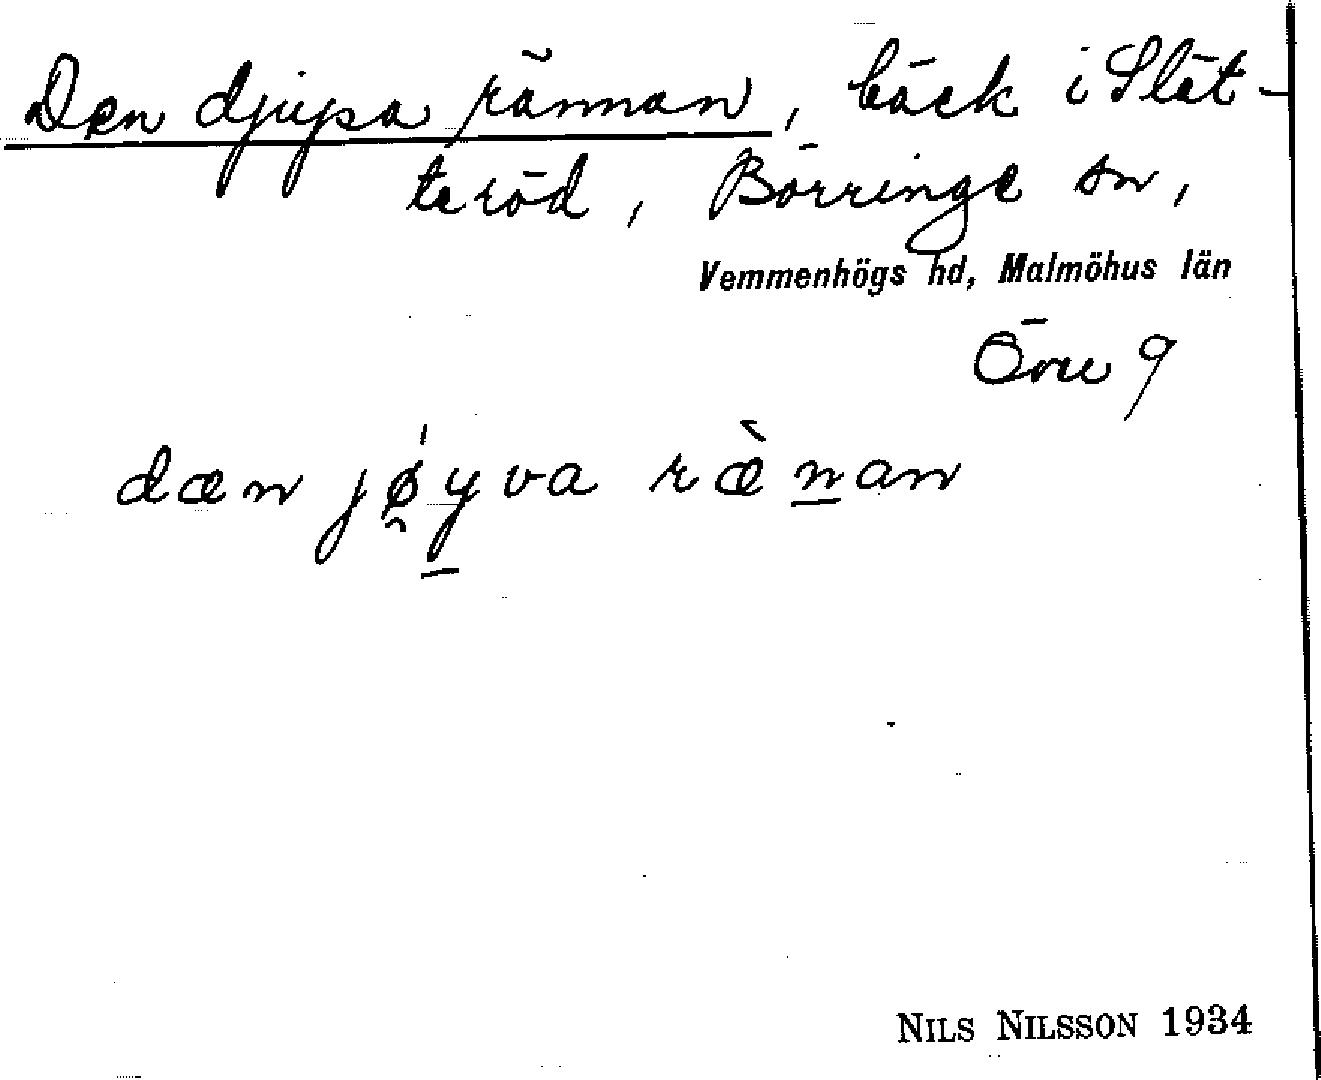 Den djupa rännan, bäck i Slät-
teröd, Börringe sn,
Vemmenhögs hd, Malmöhus län
dæn jǿ̯y̠va ræ̀n̠an
NILS NILSSON 1934